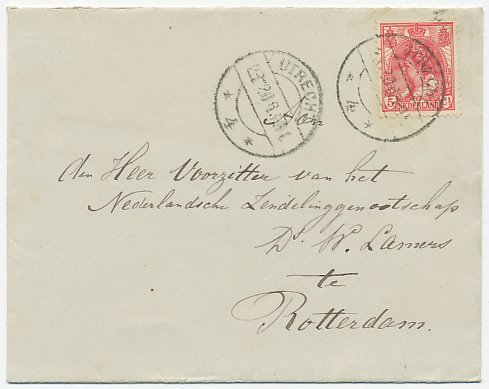 UTRECHT
4
5
NEDERLAND
Aan
den Heer Voorzitter van het
Nederlandsche Zendelinggenootschap
Ds. W. Lamers
te
Rotterdam.